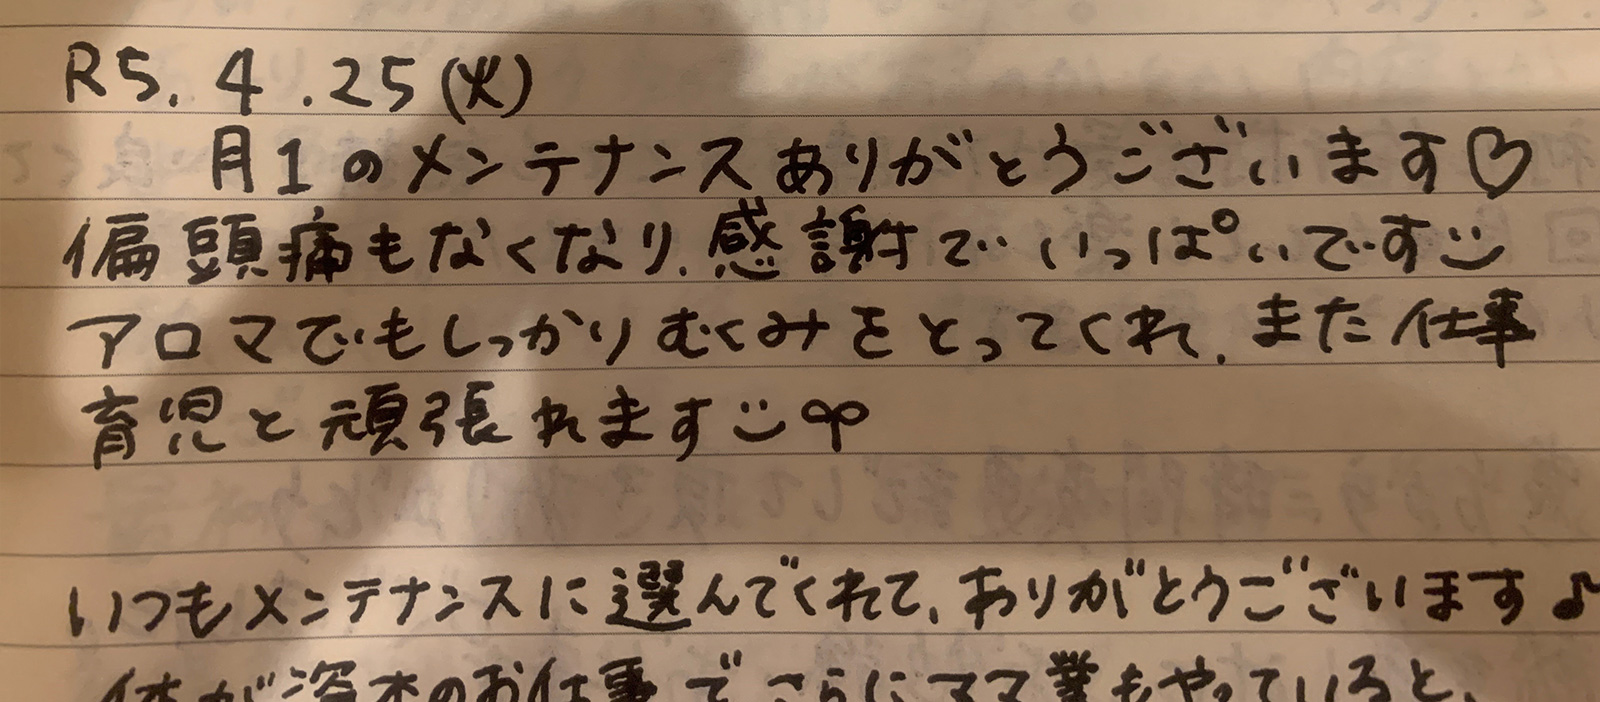 R5.4.25(火)
月1のメンテナンスありがとうございます♡
偏頭痛もなくなり、感謝でいっぱいです
アロマでもしっかりむくみをとってくれ、また仕事
育児と頑張れます
いつもメンテナンスに選んでくれて、ありがとうございます♪
体が資本のお仕事で さらにママ業もやっていると、